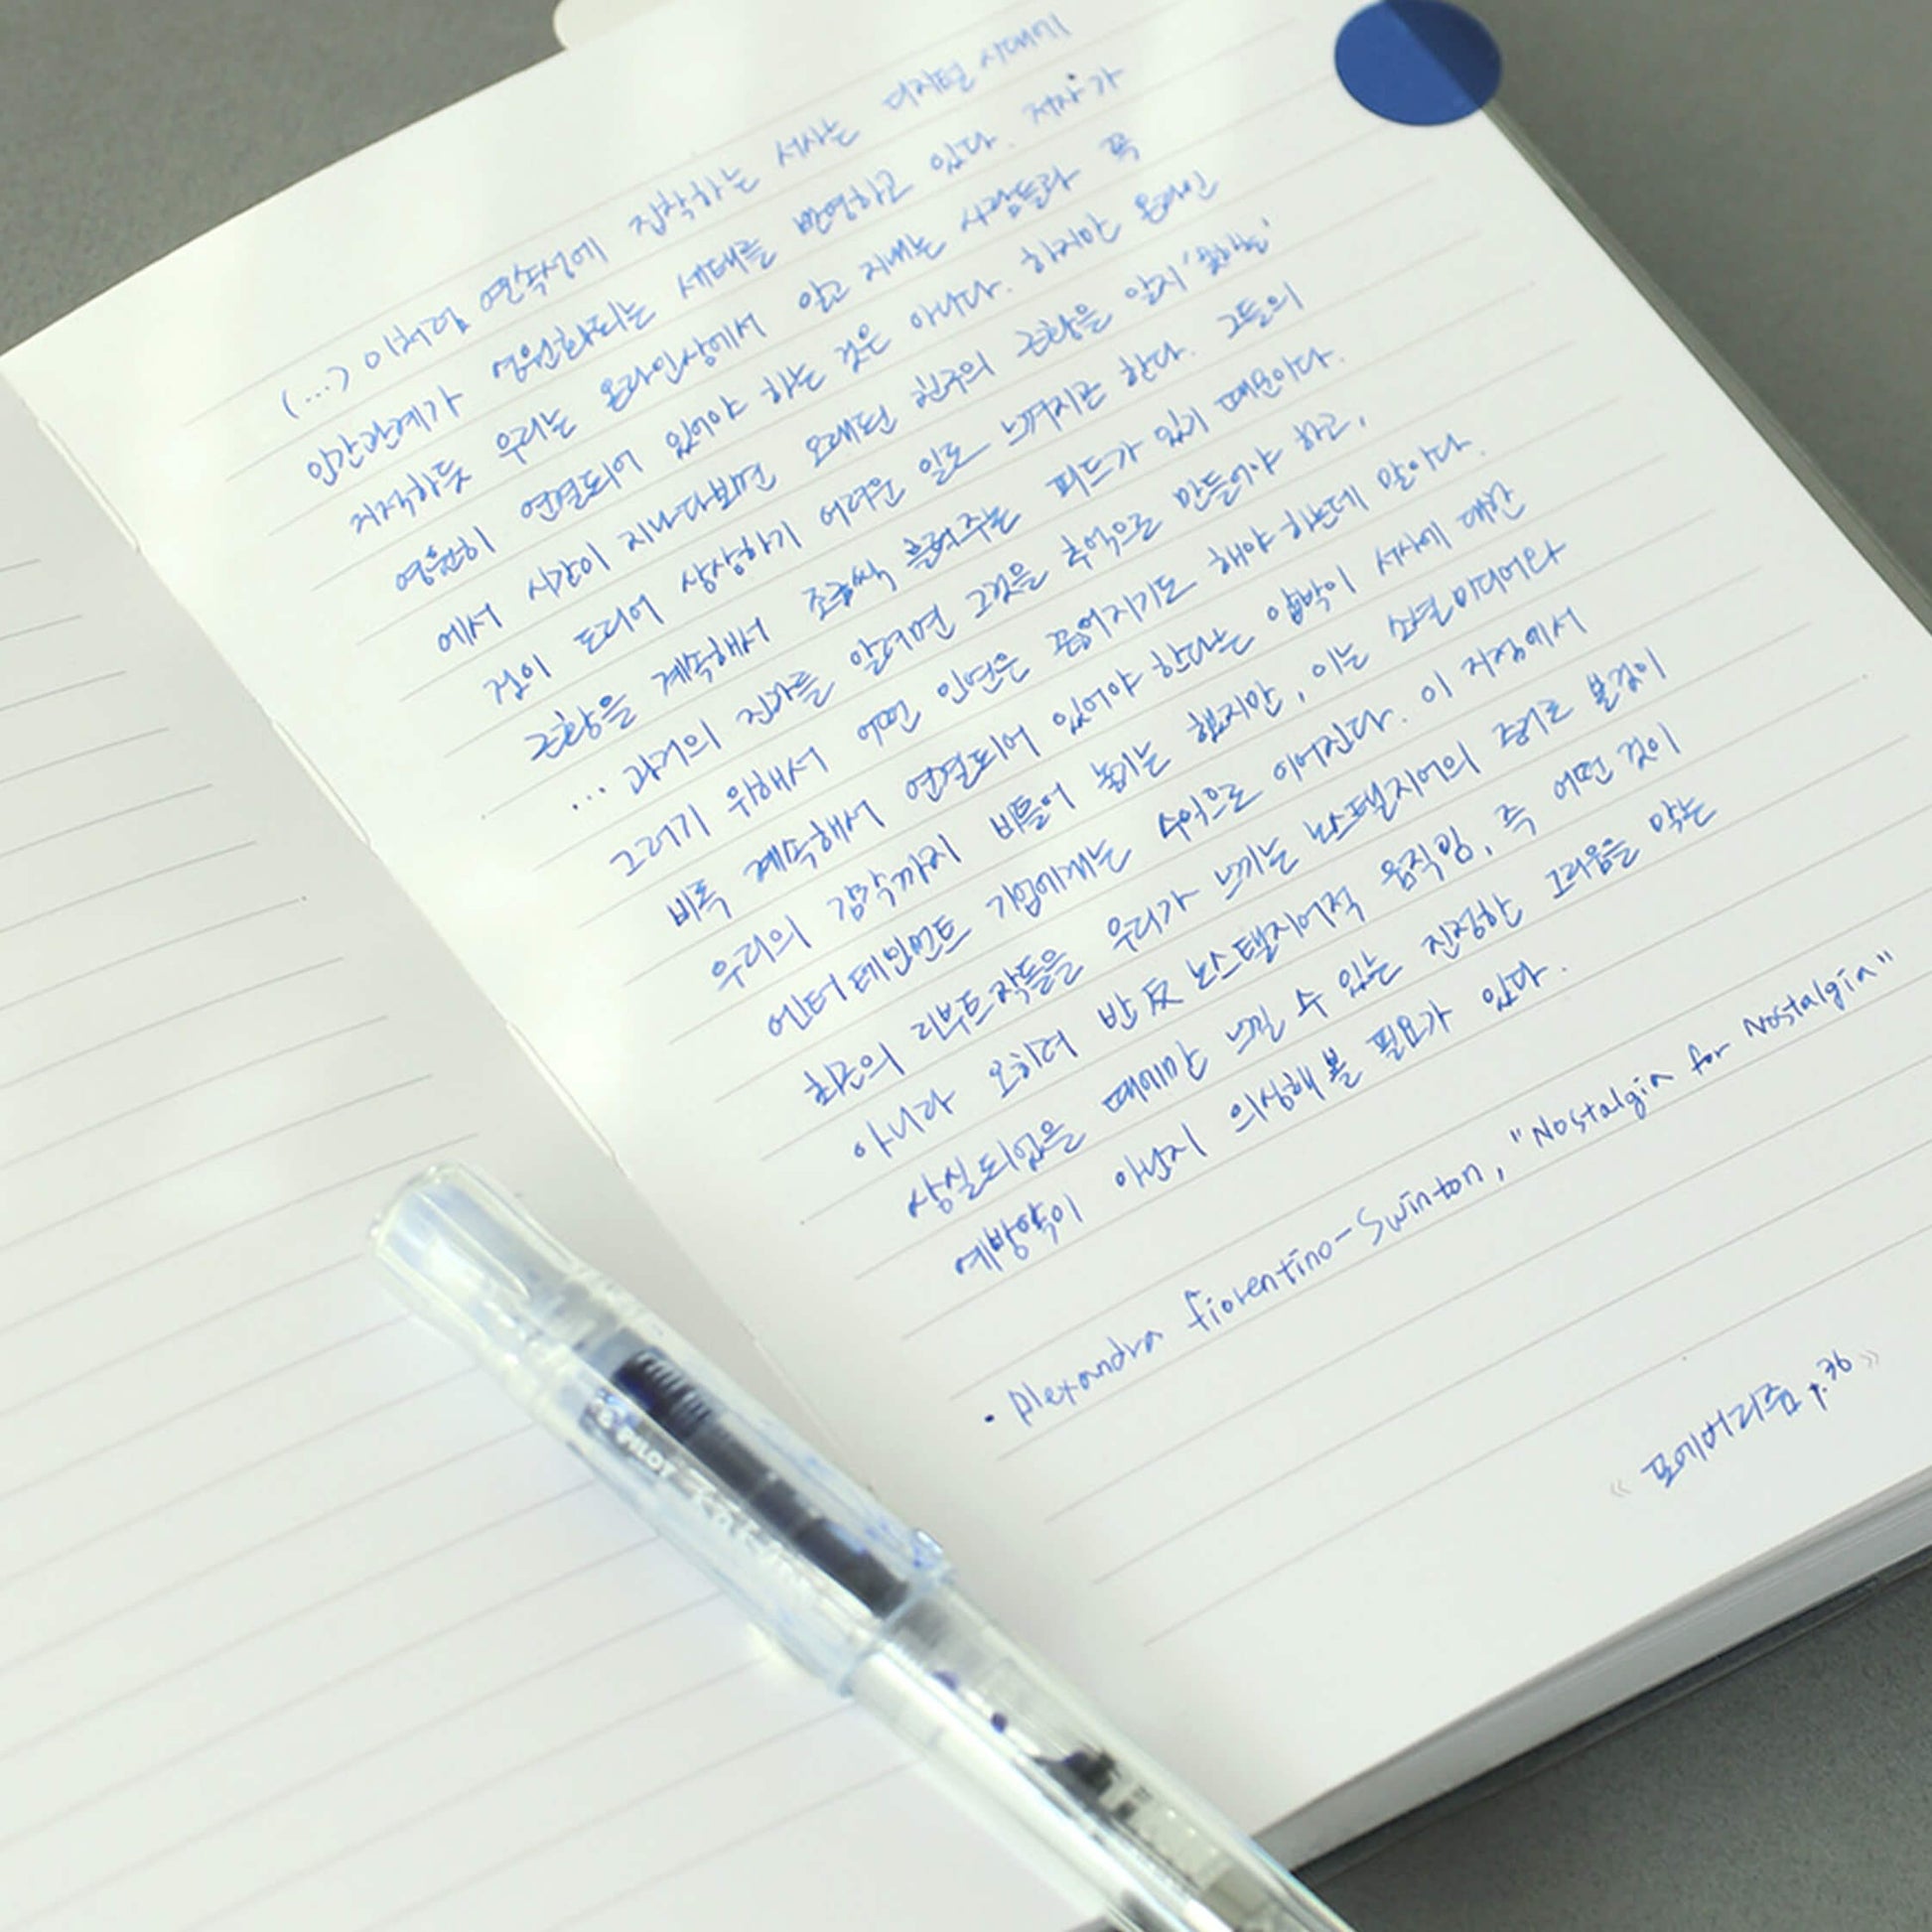 (...) 이처럼 연속성에 집착하는 서사는 디지털 시대에
인간관계가 영원화되는 세태를 반영하고 있다. 저자가
지적하듯 우리는 온라인상에서 알고 지내는 사람들과 꼭
영원히 연결되어 있어야 하는 것은 아니다. 하지만 온라인
에서 시간이 지나다보면 오래된 친구의 근황을 알지 '못하는'
것이 도리어 상상하기 어려운 일로 느껴지곤 한다. 그들의
근황을 계속해서 조금씩 흘려주는 피드가 있기 때문이다.
... 과거의 진가를 알려면 그것을 추억으로 만들어야 하고,
그러기 위해서 어떤 인연은 끊어지기도 해야 하는데 말이다.
비록 계속해서 연결되어 있어야 한다는 압박이 서사에 대한
우리의 감각까지 비틀어 놓기는 했지만, 이는 소셜미디어와
엔터테인먼트 기업에게는 수익으로 이어진다. 이 지점에서
최근의 리부트작들을 우리가 느끼는 노스탤지어의 증거로 볼것이
아니라 오히려 반反노스탤지어적 움직임, 즉 어떤 것이
상실되었을 때에만 느낄 수 있는 진정한 그리움을 막는
예방약이 아닌지 의심해볼 필요가 있다.
• Alexandra Fiorentino-Swinton, "Nostalgia for Nostalgia"
《포에버리즘 p.76》
PILOT